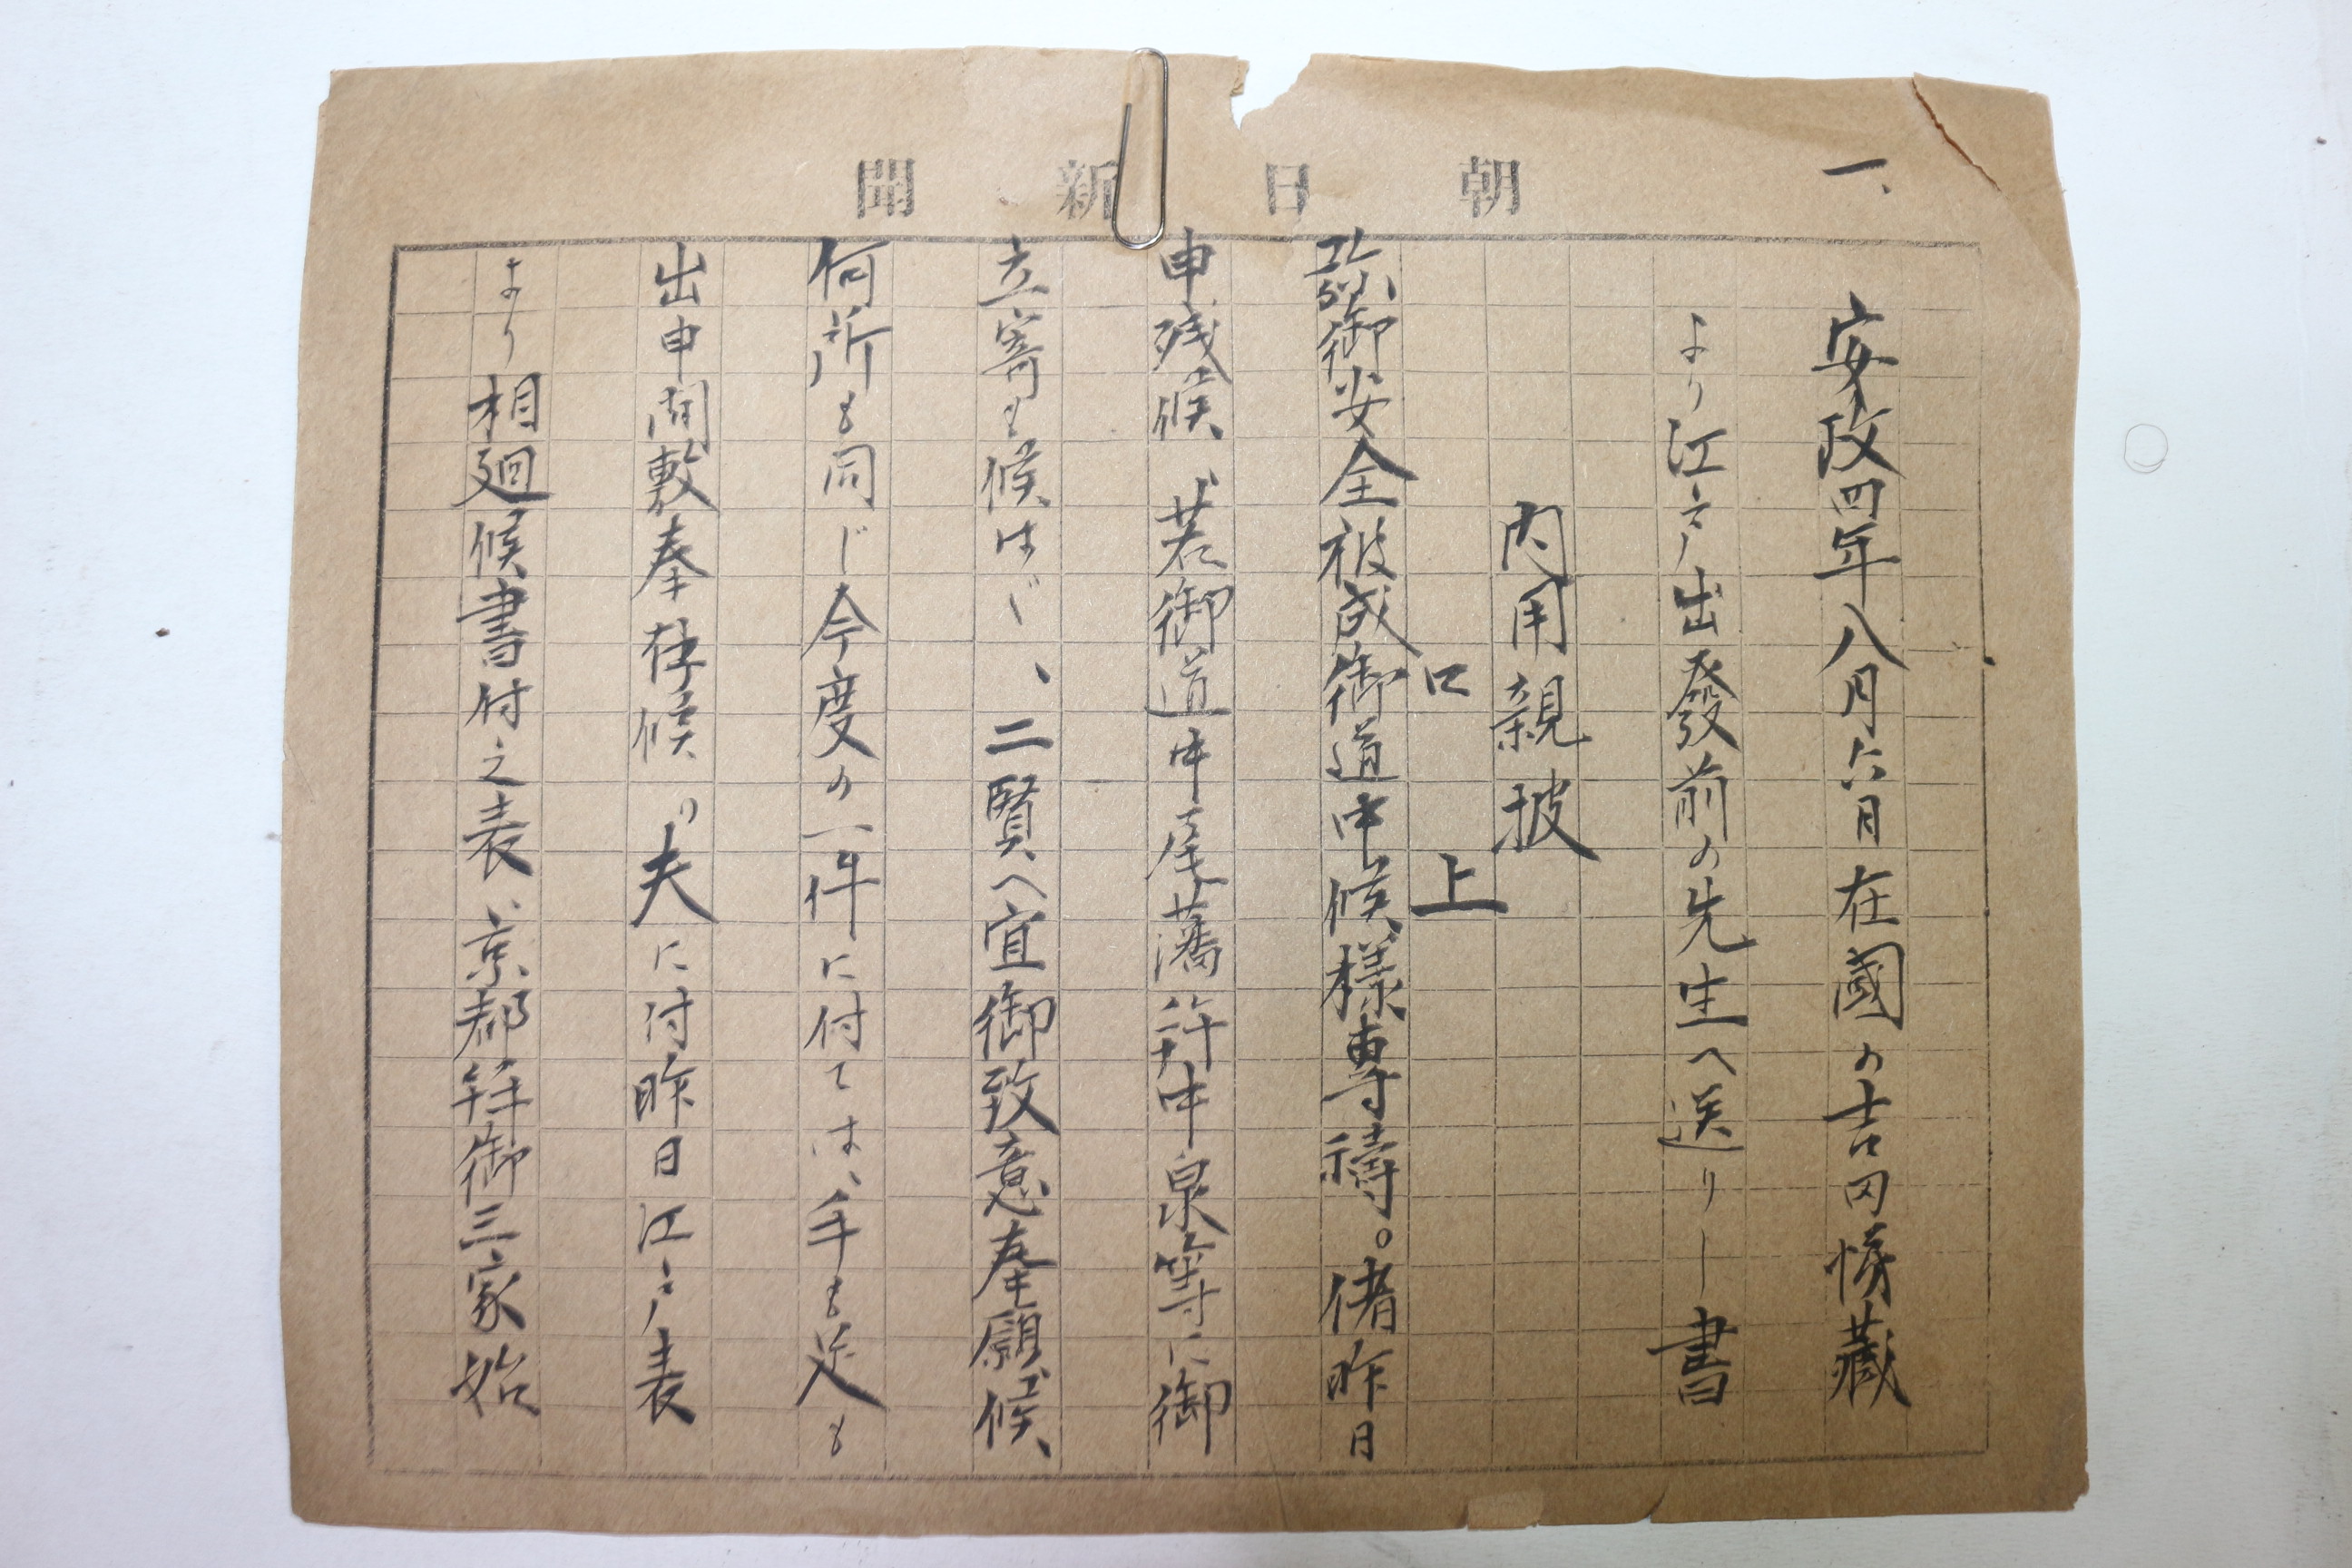 朝日新聞
一、
安政四年八月六日在國の吉田悌藏
より江戸出發前の先生へ送りし書
内用親披
口上
愈御安全被成御道中候樣專禱。偖昨日
申殘候、若御道中尾藩幷中泉等に御
立寄も候はゞ、二賢へ宜御致意奉願候、
何所も同じ今度の一件に付ては、手も足も
出申間敷奉存候。夫に付昨日江戸表
より相廻候書付之表、京都幷御三家始